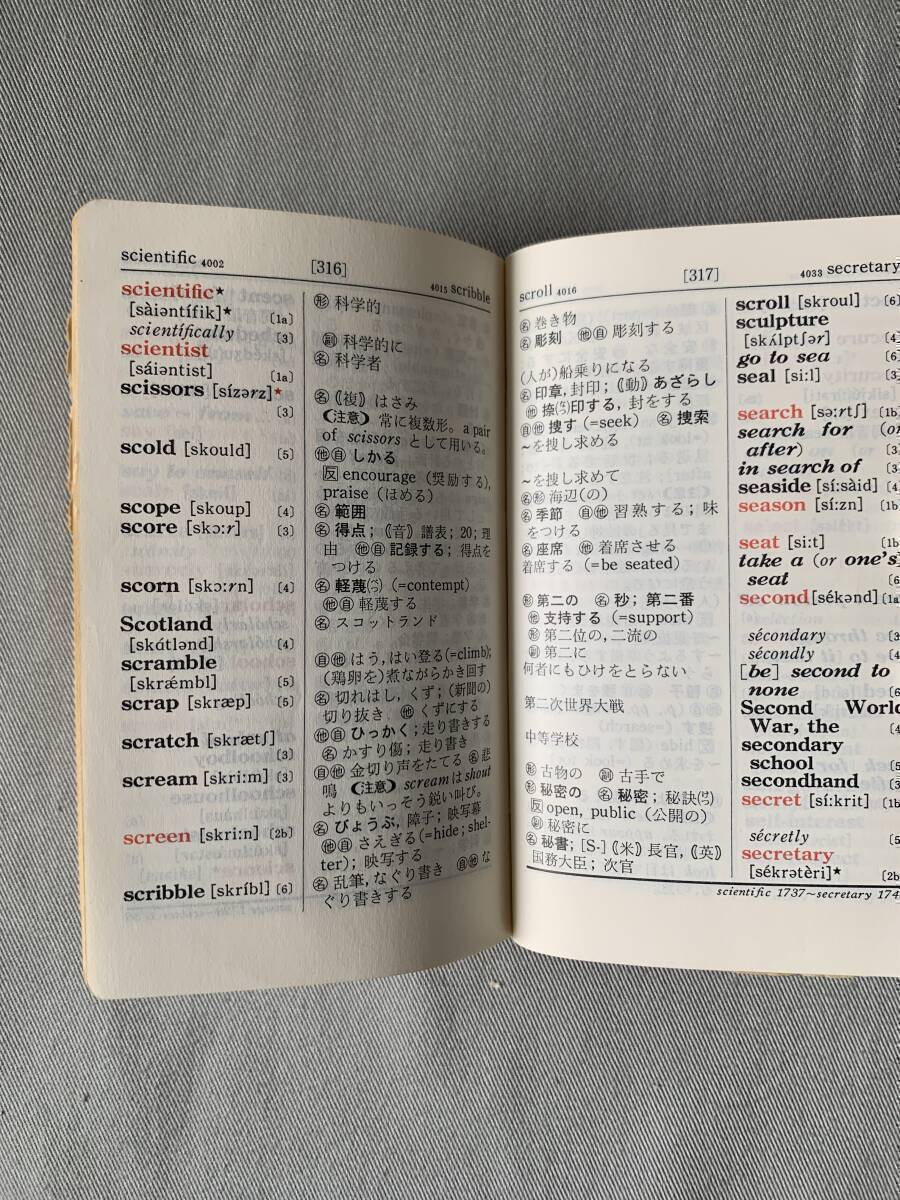 scientific 4002
[316]
4015 scribble
scientific★
[sàiəntífik]★
〔1a〕
scientífically
〔3〕
scientist
[sáiəntist]
〔1a〕
scissors [sízərz]★
〔3〕
scold [skould]
〔5〕
scope [skoup]
〔4〕
score [skɔːr]
〔3〕
scorn [skɔːrn]
〔4〕
Scotland
[skátlənd]
〔4〕
scramble
[skrǽmbl]
〔5〕
scrap [skræp]
〔5〕
scratch [skrætʃ]
〔3〕
scream [skriːm]
〔3〕
screen [skriːn]
〔2b〕
scribble [skríbl]
〔6〕
㊒ 科学的
㊓ 科学的に
㊔ 科学者
㊔ 《複》はさみ
《注意》 常に複数形。a pair
of scissors として用いる。
㊀㊁ しかる
反 encourage (奨励する),
praise (ほめる)
㊔ 範囲
㊔ 得点;《音》譜表; 20; 理
由 他自 記録する; 得点を
つける
名 軽蔑(べつ) (=contempt)
他自 軽蔑する
名 スコットランド
自他 はう, はい登る(=climb);
(鶏卵を)煮ながらかき回す
名 切れはし, くず; (新聞の)
切り抜き 他 くずにする
他自 ひっかく; 走り書きする
名 かすり傷; 走り書き
自他 金切り声をたてる 名 悲
鳴 《注意》 scream は shout
よりもいっそう鋭い叫び。
名 びょうぶ, 障子; 映写幕
他自 さえぎる(=hide; shel-
ter); 映写する
名 乱筆, なぐり書き 自他 な
ぐり書きする
scroll 4016
[317]
4033 secretary
名 巻き物
名 彫刻 他自 彫刻する
(人が)船乗りになる
名 印章, 封印;《動》あざらし
他 捺(なつ)印する, 封をする
自他 捜す (=seek) 名 捜索
~を捜し求める
~を捜し求めて
名形 海辺(の)
名 季節 自他 習熟する; 味
をつける
名 座席 他 着席させる
着席する (=be seated)
形 第二の 名 秒; 第二番
他 支持する (=support)
形 第二位の, 二流の
副 第二に
何者にもひけをとらない
第二次世界大戦
中等学校
形 古物の 副 古手で
形 秘密の 名 秘密; 秘訣(けつ)
反 open, public (公開の)
副 秘密に
名 秘書; [S-]《米》長官,《英》
国務大臣; 次官
scroll [skroul]
〔6〕
sculpture
[skʌ́lptʃər]
〔4〕
go to sea
〔6〕
seal [siːl]
〔3〕
search [səːrtʃ]
〔1b〕
search for (or
after)
〔3〕
in search of
〔3〕
seaside [síːsàid]
〔4〕
season [síːzn]
〔1b〕
seat [siːt]
〔1b〕
take a (or one's)
seat
〔6〕
second [sékənd]
〔1a〕
sécondary
〔3〕
sécondly
〔4〕
[be] second to
none
〔6〕
Second World
War, the
〔4〕
secondary
school
〔5〕
secondhand
〔3〕
secret [síːkrit]
〔1b〕
sécretly
〔5〕
secretary
[sékrətèri]★
〔2b〕
scientific 1737~secretary 174